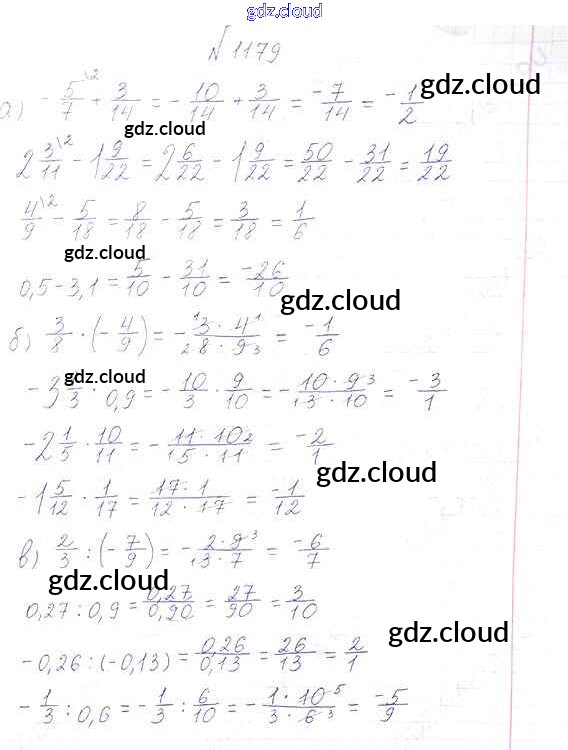 gdz.cloud
№ 1179
а) - 5/7 \2 + 3/14 = - 10/14 + 3/14 = -7/14 = -1/2
gdz.cloud
gdz.cloud
2 3/11 \2 - 1 9/22 = 2 6/22 - 1 9/22 = 50/22 - 31/22 = 19/22
4/9 \2 - 5/18 = 8/18 - 5/18 = 3/18 = 1/6
gdz.cloud
0,5 - 3,1 = 5/10 - 31/10 = -26/10
gdz.cloud
б) 3/8 · (- 4/9) = - 1 3 · 4 1 / 2 8 · 9 3 = -1/6
gdz.cloud
- 3 1/3 · 0,9 = - 10/3 · 9/10 = - 10 · 9 3 / 1 3 · 10 = -3/1
- 2 1/5 · 10/11 = - 11 · 10 2 / 1 5 · 11 = -2/1
gdz.cloud
- 1 5/12 · 1/17 = 17 · 1 / 12 · 17 = -1/12
в) 2/3 : (- 7/9) = - 2 · 9 3 / 1 3 · 7 = -6/7
gdz.cloud
gdz.cloud
0,27 : 0,9 = 0,27/0,90 = 27/90 = 3/10
gdz.cloud
- 0,26 : (- 0,13) = 0,26/0,13 = 26/13 = 2/1
- 1/3 : 0,6 = - 1/3 : 6/10 = - 1 · 10 5 / 3 · 6 3 = -5/9
gdz.cloud